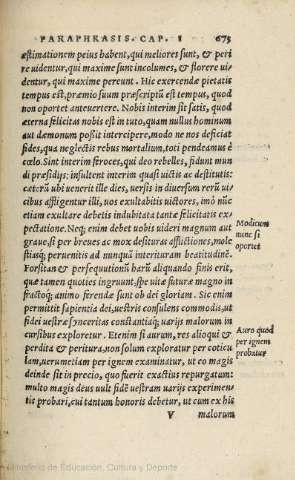 PARAPHRASIS. CAP. I 675
æstimationem peius habent, qui meliores sunt, & peri
re uidentur, qui maxime sunt incolumes, & florere ui-
dentur, qui maxime pereunt. Hic exercendæ pietatis
tempus est, præmio suum præscriptũ est tempus, quod
non oportet anteuertere. Nobis interim sit satis, quod
æterna felicitas nobis est in tuto, quam nullus hominum
aut dæmonum possit intercipere, modo ne nos deficiat
fides, qua neglectis rebus mortalium, toti pendeamus è
cœlo. Sint interim feroces, qui deo rebelles, fidunt mun
di præsidijs: insultent interim quasi uictis ac destitutis:
cæterũ ubi uenerit ille dies, uersis in diuersum rerũ ui-
cibus affligentur illi, uos exultabitis uictores, imò nũc
etiam exultare debetis indubitata tantæ felicitatis ex-
pectatione. Neq; enim debet uobis uideri magnum aut
graue, si per breues ac mox desituras afflictiones, mole
stiasq; peruenitis ad nunquã interituram beatitudinẽ.
Forsitan & persequutionũ harũ aliquando finis erit,
quæ tamen quoties ingruunt, spe uitæ futuræ magno in
fractoq; animo ferendæ sunt ob dei gloriam. Sic enim
permittit sapientia dei, uestris consulens commodis, ut
fidei uestræ synceritas constantiaq; uarijs malorum in
cursibus exploretur. Etenim si aurum, res alioqui &
perdita & peritura, non solum exploratur per coticu
lam, uerumetiam per ignem examinatur, ut eo magis
deinde sit in precio, quo fuerit exactius repurgatum:
multo magis deus uult fidẽ uestram uarijs experimen
tis probari, cui tantum honoris debetur, ut cum ex his
V malorum
Modicum
nunc si
oportet
Auro quod
per ignem
probatur
Ministerio de Educación, Cultura y Deporte